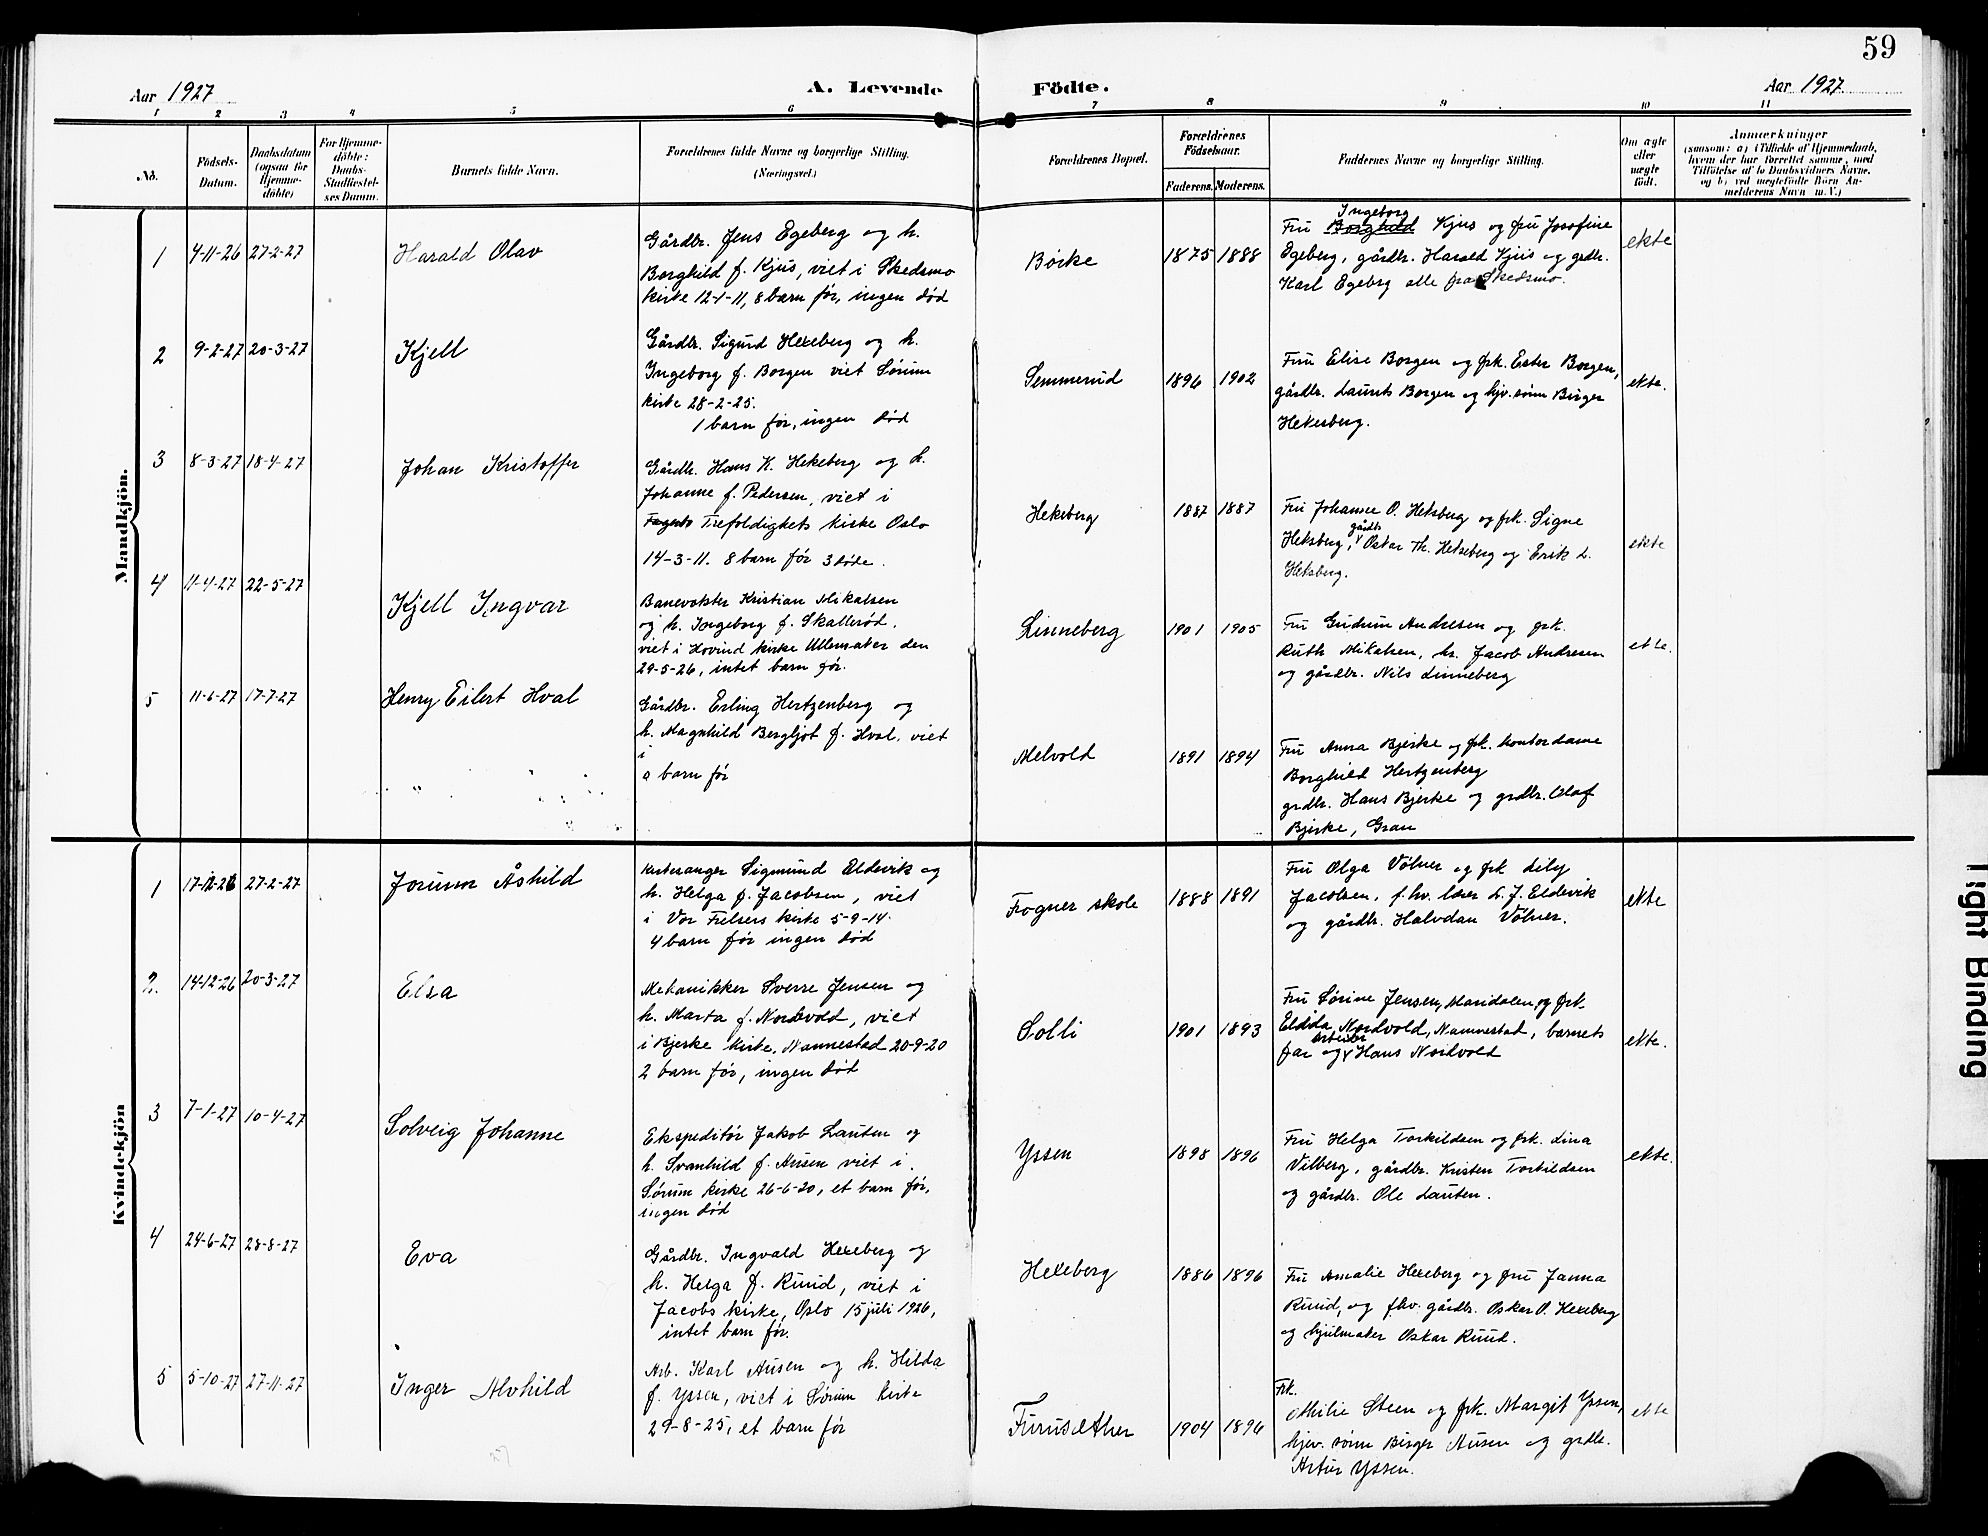 59
Aar 1927
A. Levende Födte.
Aar 1927
1 2 3 4 5 6 7 8 9 10 11
No.
Födsels-
Datum.
Daabsdatum
(ogsaa for
Hjemme-
döbte)
For Hjemme-
döbte:
Daabs-
Stadfæstel-
ses Datum.
Barnets fulde Navn.
Forældrenes fulde Navne og borgerlige Stilling.
(Næringsvei.)
Forældrenes Bopæl.
Forældrenes
Födselsaar.
Faderens. Moderens.
Faddernes Navne og borgerlige Stilling.
Om ægte
eller
uægte
født.
Anmærkninger
(saasom: a) (Tilfælde af Hjemmedaab,
hvem der har forrettet samme, med
Tilföielse af to Daabsvidners Navne.
og b) ved uægtefödte Börn An-
melderens Navn m. V.)
Mandkjön.
1 4-11-26 27-2-27
Harald Olav
Gårdbr. Jens Egeberg og h.
Borghild f. Kjus, viet i Skedsmo
kirke 12-1-11, 8 barn før, ingen død
Børke
1875 1888
Ingeborg
Fru Borghild Kjus og fru Josefine
Egeberg, gårdbr. Harald Kjus og grdbr.
Karl Egeberg alle fra Skedsmo.
ekte
2 9-2-27 20-3-27
Kjell
Gårdbr. Sigurd Hexeberg og h.
Ingeborg f. Borgen viet Sørum
kirke 28-2-25.
1 barn før, ingen død
Semmerud
1896 1902
Fru Elise Borgen og frk. Ester Borgen,
gårdbr. Laurits Borgen og hjv. sønn Birger
Hekseberg.
ekte.
3 8-3-27 18-4-27
Johan Kristoffer
Gårdbr. Hans K. Hekeberg og h.
Johanne f. Pedersen, viet i
Trefoldighets kirke Oslo
14-3-11. 8 barn før 3 døde.
Heksberg
1887 1887
Fru Johanne O. Heksberg og frk. Signe
gårdb.
Heksberg, Oskar Th. Hekseberg og Erik L.
Heksberg.
ekte
4 11-4-27 22-5-27
Kjell Ingvar
Banevokter Kristian Mikalsen
og h. Ingeborg f. Skallerød.
viet i Hovind kirke Ullensaker den
29-5-26, intet barn før.
Linneberg
1901 1905
Fru Gudrun Andresen og frk.
Ruth Mikalsen, hr. Jacob Andresen
og gårdbr. Nils Linneberg
ekte.
5 11-6-27 17-7-27
Henry Eilert Hval
Gårdbr. Erling Hertzenberg og
h. Magnhild Bergljot f. Hval, viet
i
0 barn før
Melvold
1891 1894
Fru Anna Bjerke og frk. kontordame
Borghild Hertzenberg
grdbr. Hans Bjerke og grdbr. Olaf
Bjerke, Gran
Kvindekjön
1 17-12-26 27-2-27
Jorunn Åshild
Kirkesanger Sigmund Eldevik og
h. Helga f. Jacobsen, viet
i Vor Frelsers kirke 5-9-14.
4 barn før ingen død
Frogner skole
1888 1891
Fru Olga Vølner og frk Lily
Jacobsen, f.hv. lærer L. J. Eldevik
og gårdbr. Halvdan Vølner.
ekte
2. 14-12-26 20-3-27
Elsa
Mekanikker Sverre Jensen og
h. Marta f. Nordvold, viet
i Bjerke kirke, Nannestad 20-9-20
2 barn før, ingen død
Solli
1901 1893
Fru Sørine Jensen, Maridalen, og frk
Eldida Nordvold, Nannestad, barnets
arbeider
far og Hans Nordvold
ekte.
3 7-1-27 10-4-27
Solveig Johanne
Ekspeditør Jakob Lauten og
h. Svanhild f. Ausen viet i
Sørum kirke 26-6-20, et barn før,
ingen død
Yssen
1898 1896
Fru Helga Torkildsen og frk. Lina
Vilberg, gårdbr. Kristen Torkildsen
og gårdbr. Ole Lauten.
ekte.
4 24-6-27 28-8-27
Eva
Gårdbr. Ingvald Hexeberg og
h. Helga f. Ruud, viet i
Jacobs kirke, Oslo 15 juli 1926,
intet barn før.
Hexeberg
1886 1896
Fru Amalie Hexeberg og fru Janna
Ruud, og fhv. gårdbr. Oskar O. Hexeberg
og hjulmaker Oskar Ruud.
5 5-10-27 27-11-27
Inger Alvhild
Arb. Karl Ausen og h. Hilda
f. Yssen, viet i Sørum kirke
29-8-25, et barn før
Furusæther
1904 1896
Frk.
Milie Steen og frk. Margit Yssen,
hjev. sønn Birger Ausen og grdbr.
Artur Yssen.
ekte
Tight Binding